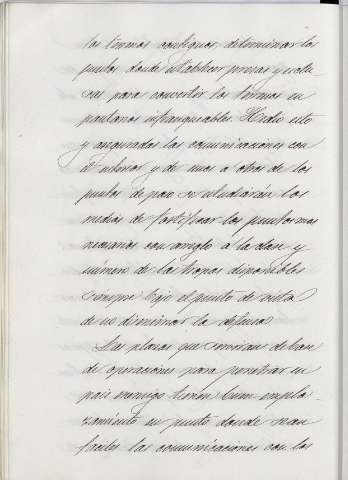 los terrenos contiguos, determinar los
puntos donde establecer presas y esclu-
sas para convertir los terrenos en
pantanos infranqueables. Hecho esto
y aseguradas las comunicaciones con
el interior y de unos a otros de los
puntos de paso se estudiarán los
medios de fortificar los puntos mas
necesarios con arreglo á la clase y
número de las tropas disponibles
siempre bajo el punto de vista
de no diseminar la defensa.
Las plazas que servirian de base
de operaciones para penetrar en
pais enemigo tienen buen empla-
zamiento en punto donde sean
faciles las comunicaciones con los